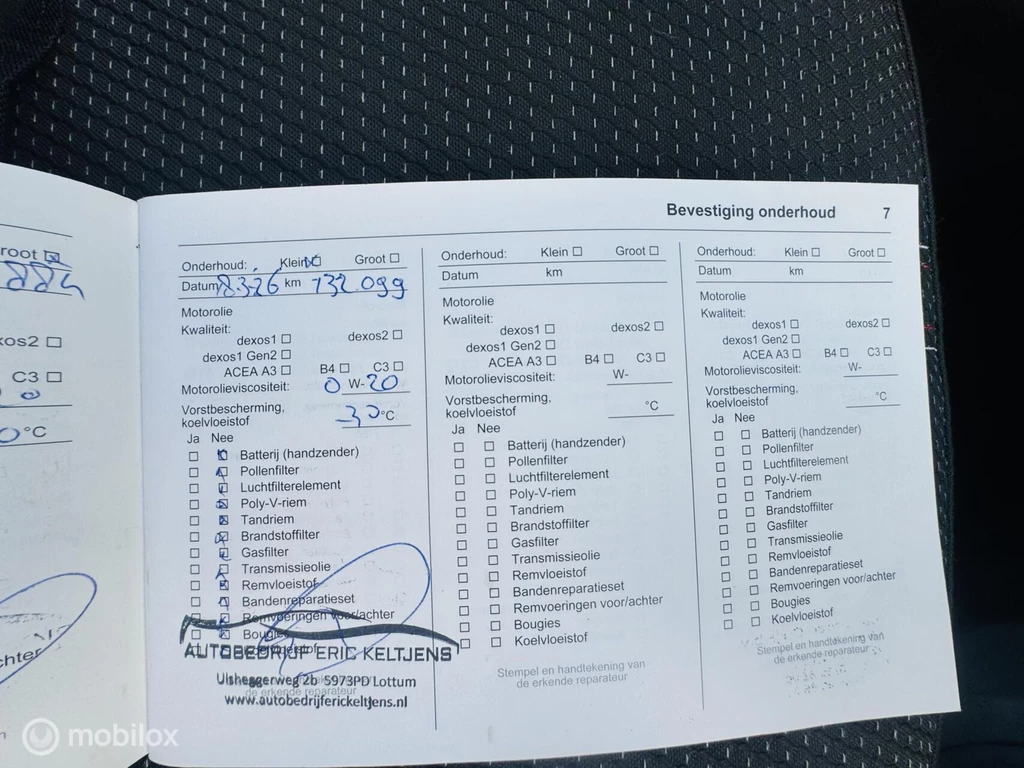 Bevestiging onderhoud 7
Groot
884
dexos2
C3
0
0°C
achter
Onderhoud: Klein Groot
Datum 8-3-26 km 132.099
Motorolie
Kwaliteit:
dexos1 dexos2
dexos1 Gen2
ACEA A3 B4 C3
Motorolieviscositeit: 0 W- 20
Vorstbescherming,
koelvloeistof -30 °C
Ja Nee
Batterij (handzender)
Pollenfilter
Luchtfilterelement
Poly-V-riem
Tandriem
Brandstoffilter
Gasfilter
Transmissieolie
Remvloeistof
Bandenreparatieset
Remvoeringen voor/achter
Bougies
Koelvloeistof
AUTOBEDRIJF ERIC KELTJENS
5973PD Lottum
de erkende reparateur
www.autobedrijferickeltjens.nl
Onderhoud: Klein Groot
Datum km
Motorolie
Kwaliteit:
dexos1 dexos2
dexos1 Gen2
ACEA A3 B4 C3
Motorolieviscositeit: W-
Vorstbescherming,
koelvloeistof °C
Ja Nee
Batterij (handzender)
Pollenfilter
Luchtfilterelement
Poly-V-riem
Tandriem
Brandstoffilter
Gasfilter
Transmissieolie
Remvloeistof
Bandenreparatieset
Remvoeringen voor/achter
Bougies
Koelvloeistof
Stempel en handtekening van
de erkende reparateur
Onderhoud: Klein Groot
Datum km
Motorolie
Kwaliteit:
dexos1 dexos2
dexos1 Gen2
ACEA A3 B4 C3
Motorolieviscositeit: W-
Vorstbescherming,
koelvloeistof °C
Ja Nee
Batterij (handzender)
Pollenfilter
Luchtfilterelement
Poly-V-riem
Tandriem
Brandstoffilter
Gasfilter
Transmissieolie
Remvloeistof
Bandenreparatieset
Remvoeringen voor/achter
Bougies
Koelvloeistof
Stempel en handtekening van
de erkende reparateur
mobilox